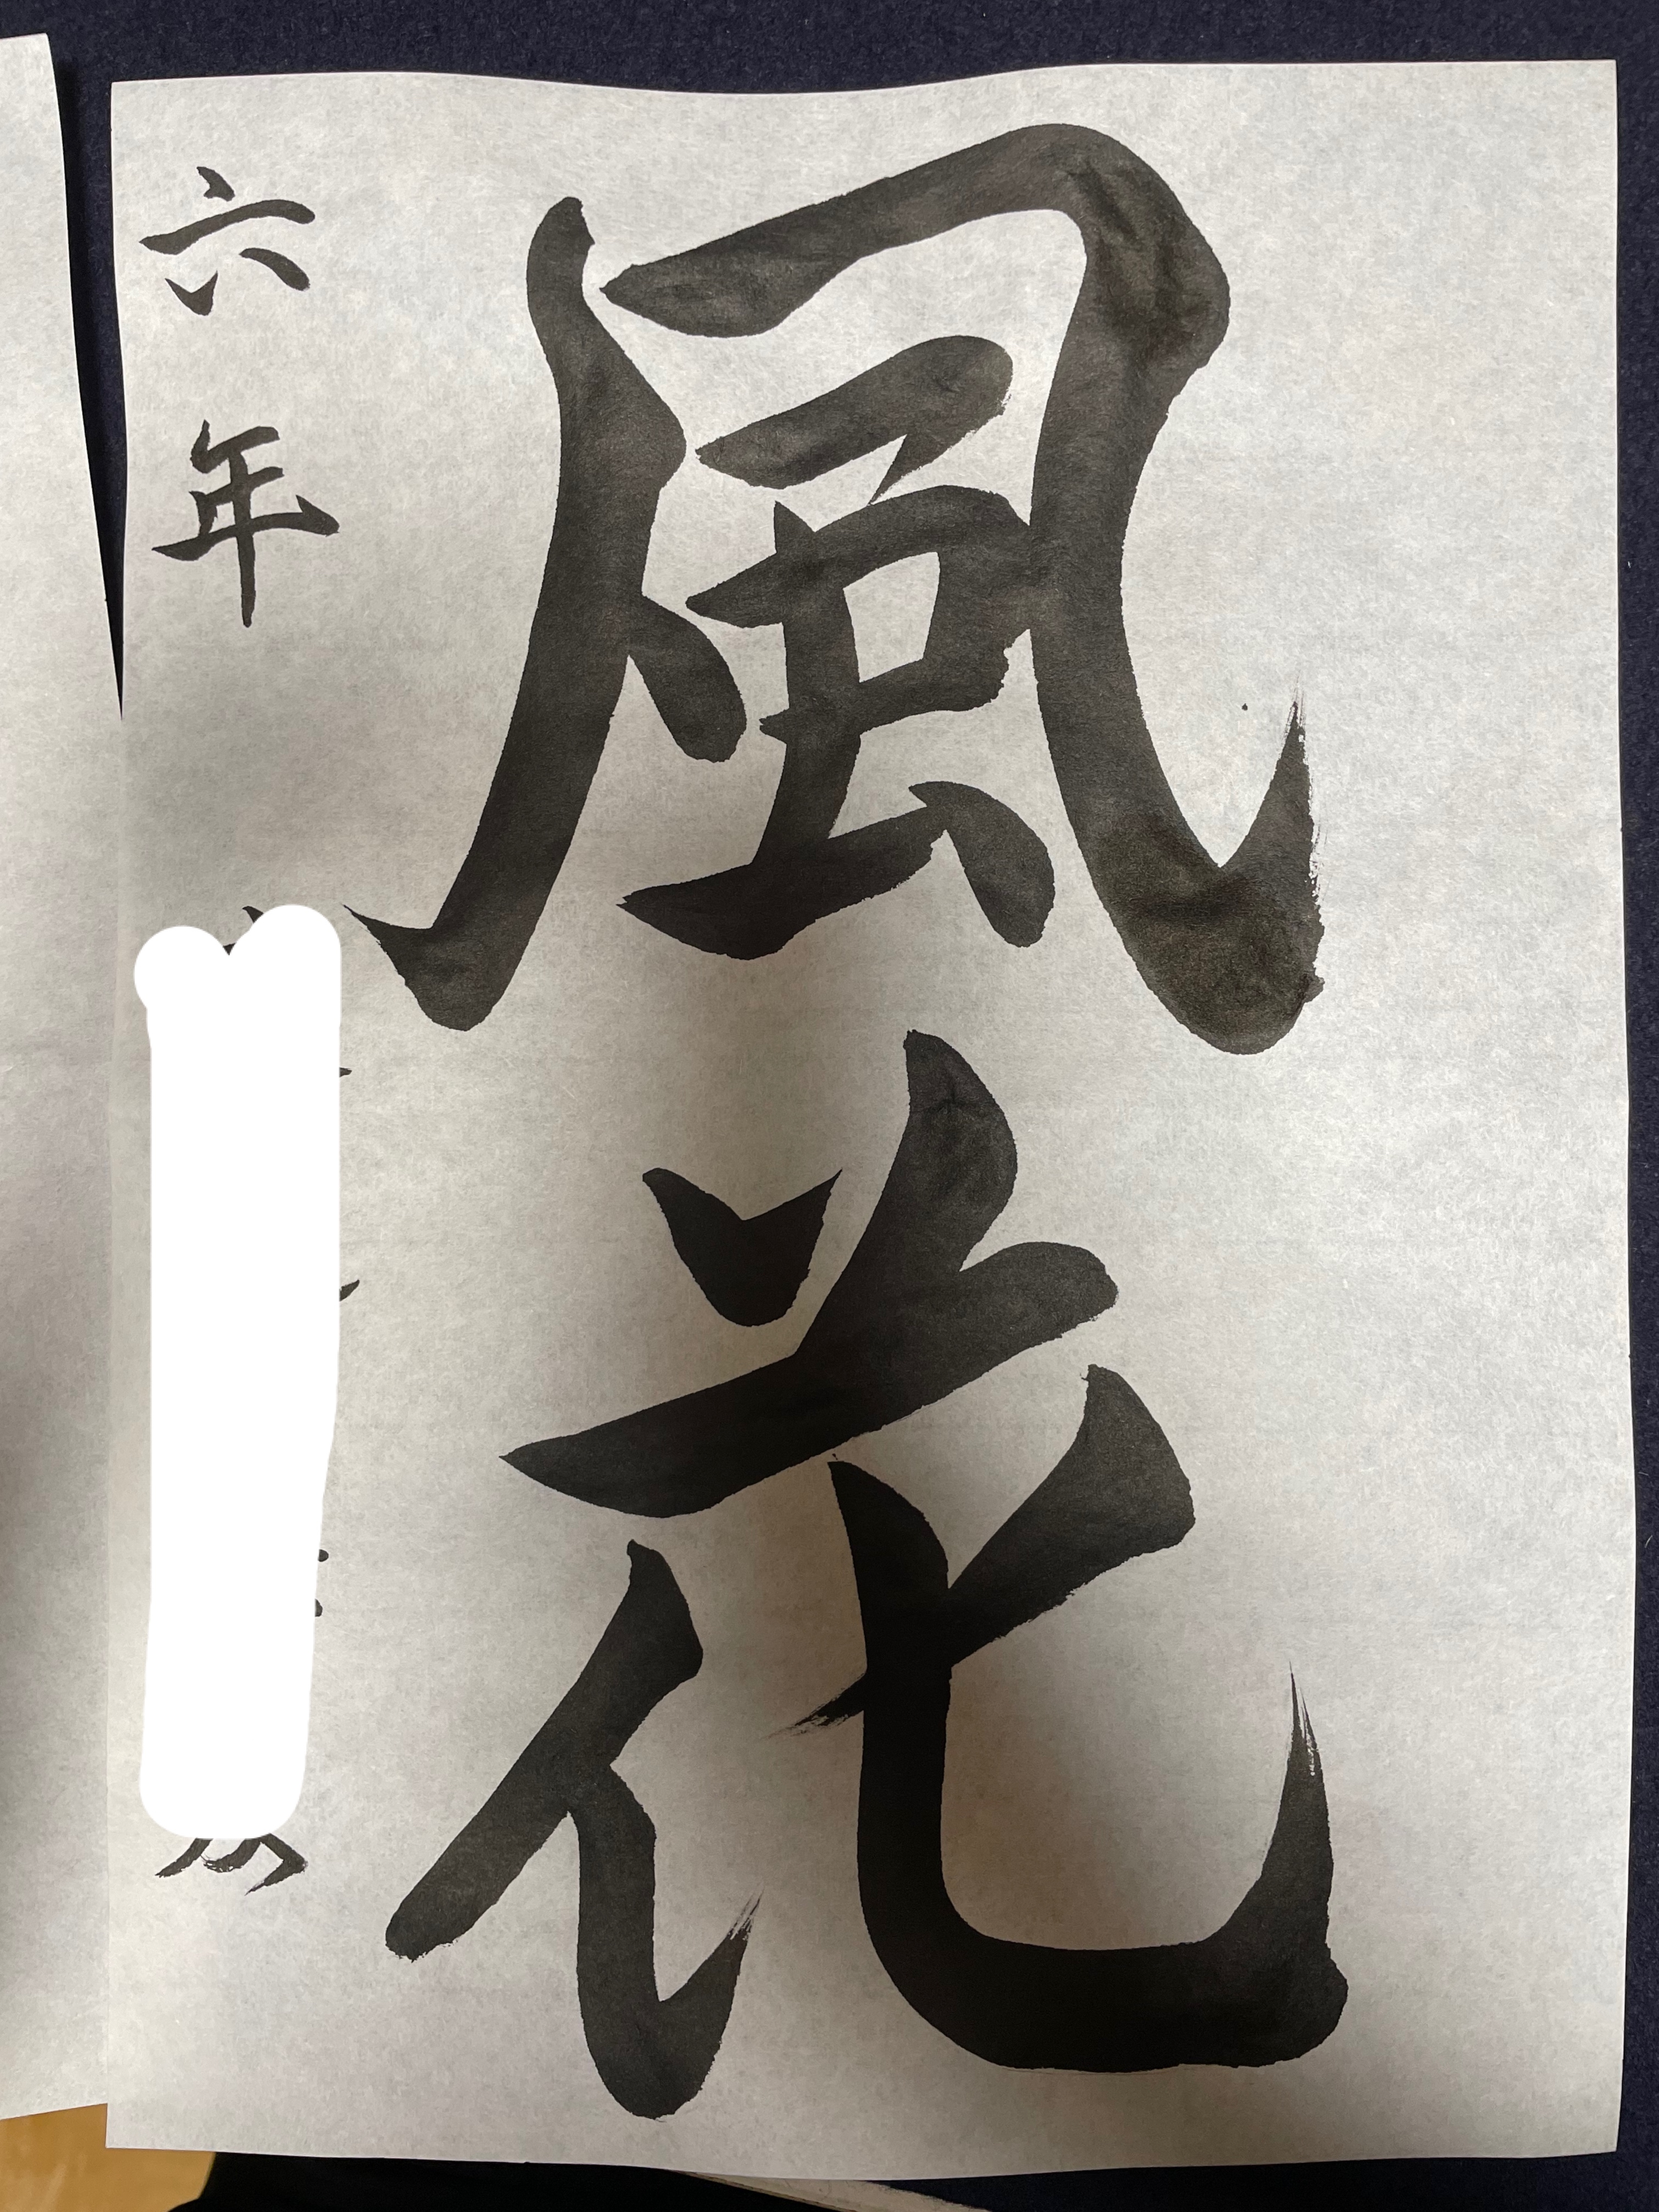 風花
六年